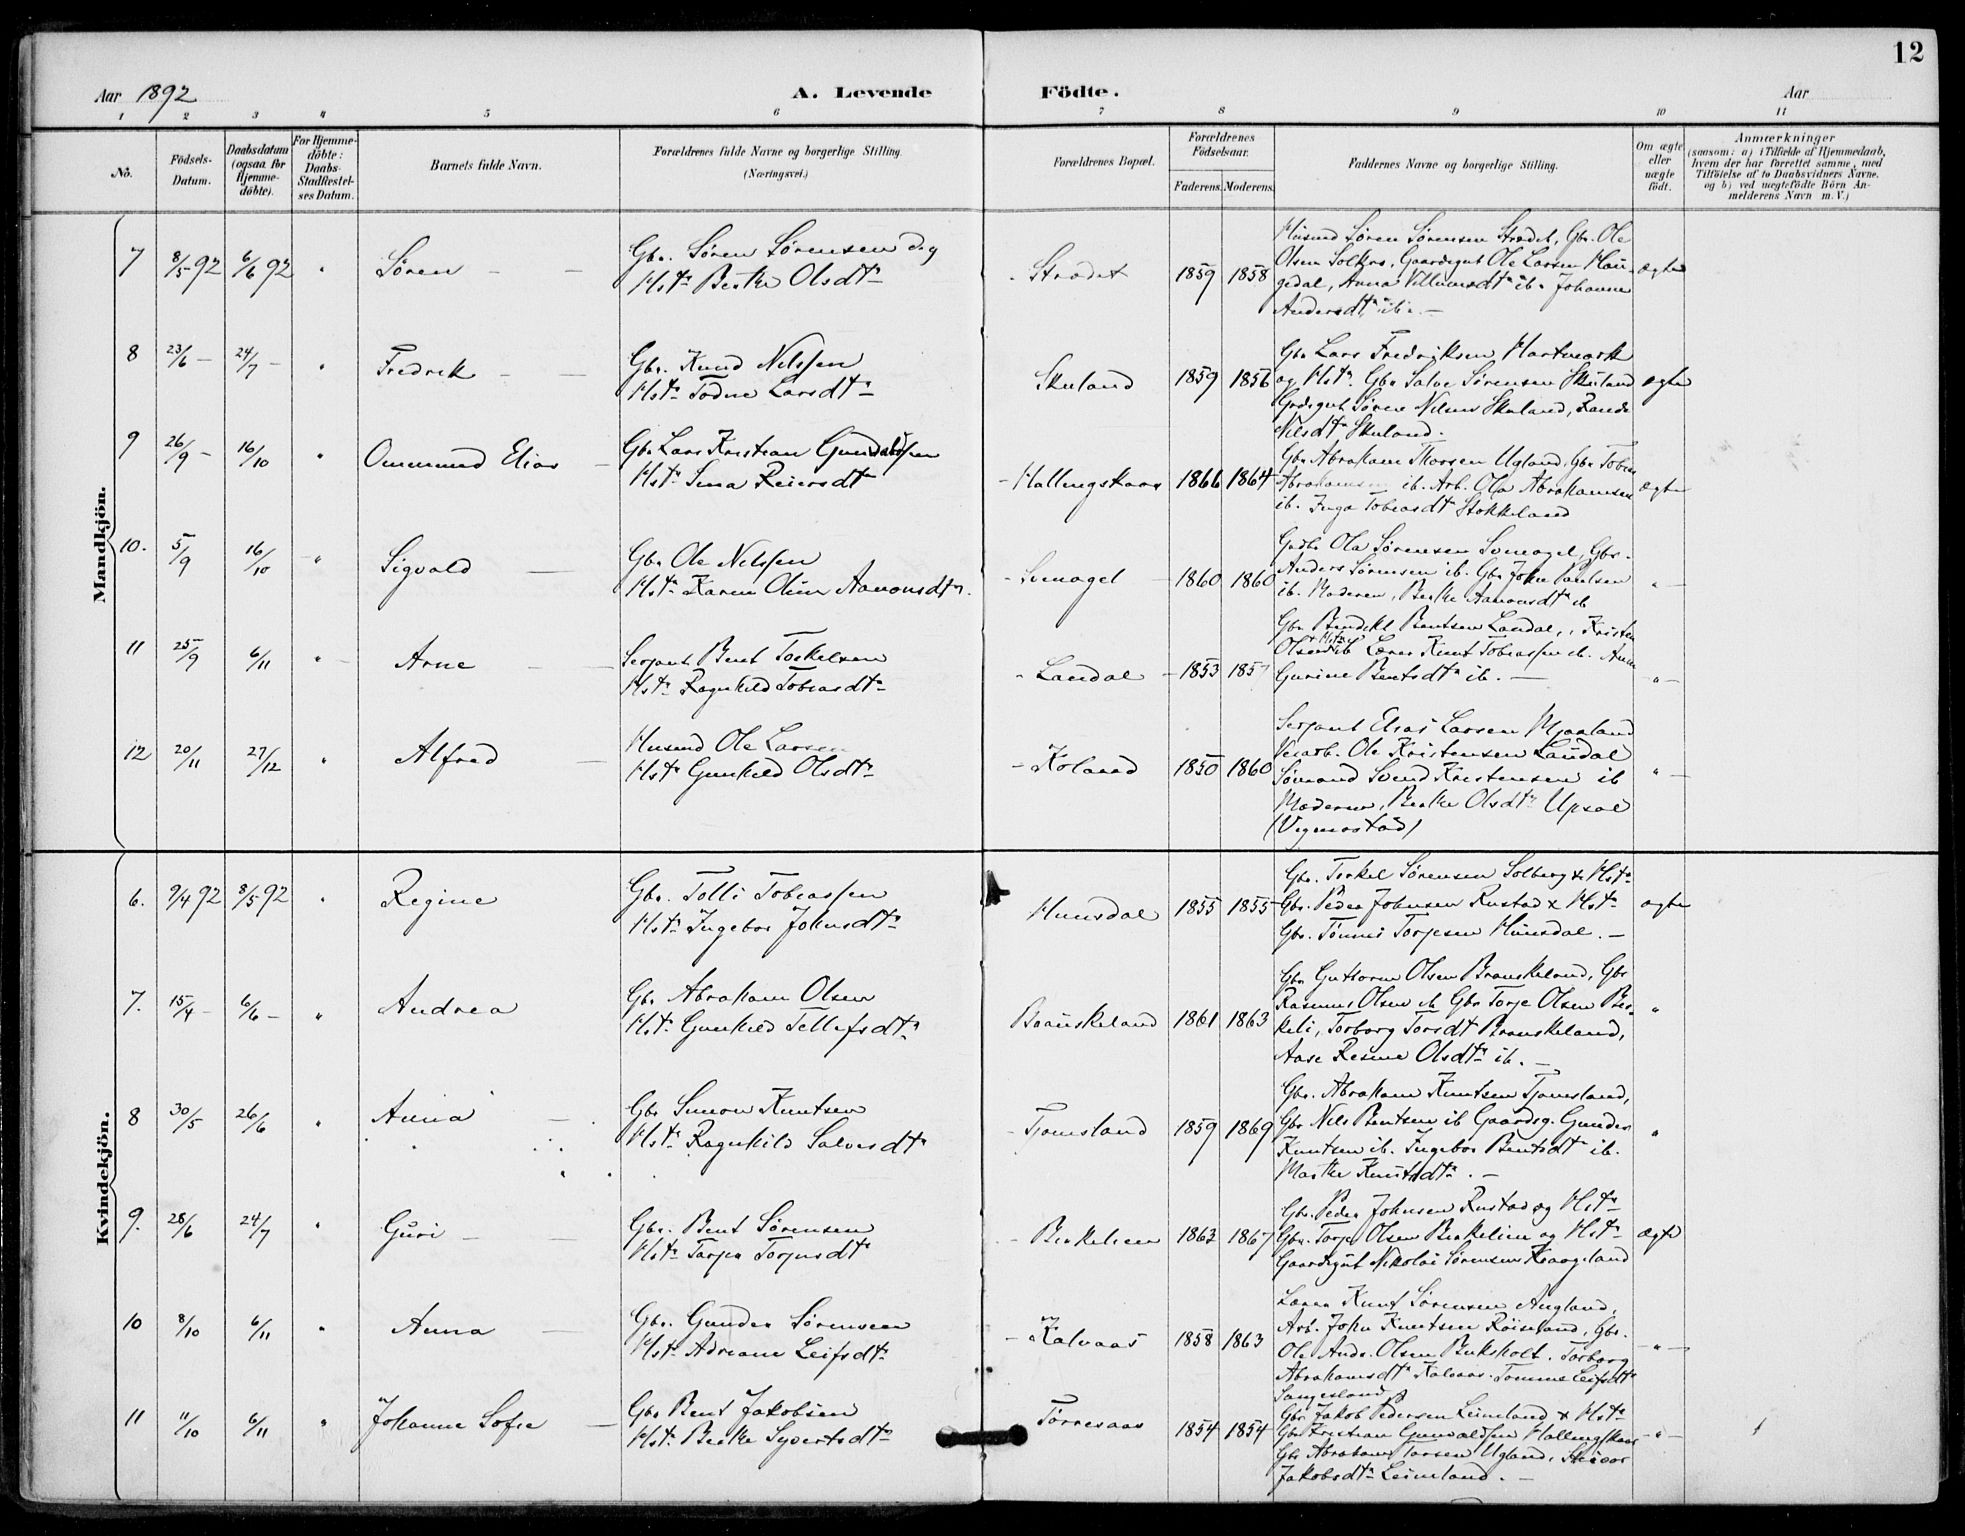 12
Aar 1892 A. Levende Födte. Aar
1 2 3 4 5 6 7 8 9 10 11
No.
Födsels-Datum.
Daabsdatum (ogsaa for Hjemmedöbte).
For Hjemmedöbte: Daabs-Stadfæstelses Datum.
Barnets fulde Navn.
Forældrenes fulde Navne og borgerlige Stilling.
(Næringsvei.)
Forældrenes Bopæl.
Forældrenes Födselsaar.
Faderens. Moderens.
Faddernes Navne og borgerlige Stilling.
Om ægte eller uægte födt.
Anmærkninger
(saasom: a) i Tilfælde af Hjemmedaab,
hvem der har forrettet samme, med
Tilföielse af to Daabsvidners Navne,
og b) ved uægtefödte Börn Anmelderens Navn m. V.)
Mandkjön.
7 8/5 92 6/6 92 " Søren Gbr. Søren Sørensen og Hst. Berthe Olsdtr Strædet 1859 1858 Husmd Søren Sørensen Strædet, Gbr. Ole ægte
Olsen Solkas, Gaardsgut Ole Larsen
Anna Villumsdtr ib. Johanne
Andersdtr ib.
8 23/6 24/7 " Fredrik Gbr. Knud Nilssen Hstr. Todne Larsdtr Skuland 1859 1856 Gbr Lars Fredriksen Hartmark ægte
og Hstr. Gbr Salve Sørensen Skuland
Grdsgut Søren Nilsen Skuland, Rande
Nilsdtr Skuland.
9 26/9 16/10 " Ommund Elias Gbr Lars Kristian Gundersen Hstr Sina Reiersdtr Hallingskaar 1866 1864 Gbr Abraham Thorsen Ugland, Gbr Tobias ægte
Abrahamsen ib. Arb. Ola Abrahamsen
ib. Inga Tobiasdtr Stokkeland
10. 5/9 16/10 " Sigvald Gbr Ole Nilssen Hstr Karen Oline Aanonsdtr. Svinagel 1860 1860 Gbr Ola Sørensen Svinagel, Gbr. "
Anders Sørensen ib. Gbr John Paulsen
ib. Moderen, Berthe Aanonsdtr ib
11 25/9 6/11 " Arne Sergant Bent Torkelsen Hstr Ragnhild Tobiasdtr Landal 1853 185 Gbr Bendikt Bentsen Landal, Kristen "
Olsen ib Lærer Knut Tobiassen ib. Anne
Gurine Bentsdtr ib.
12 20/11 27/12 " Alfred Husmd Ole Larsen Hstr Gunhild Olsdtr Kolaad 1850 1860 Sergant Elias Larsen Mjaaland "
Ole Kristensen Landal
Sømand Svend Kristensen ib
Moderen, Berthe Olsdtr Upsal
(Vigmostad)
Kvindekjön.
6. 9/4 92 8/5 92 " Regine Gbr. Tolli Tobiassen Hstr Ingebor Johnsdtr Hunsdal 1855 1855 Gbr. Torkel Sørensen Solberg & Hstr ægte
Gbr. Peder Johnsen Rustad & Hstr
Gbr. Tønnes Torjesen Hunsdal.
7. 15/4 6/6 " Andrea Gbr Abraham Olsen Hstr Gunhild Tellefsdtr Brauskeland 1861 1863 Gbr Guttorm Olsen Brauskeland, Gbr "
Rasmus Olsen ib Gbr Torje Olsen Birkeli, Torborg Torsdt Brauskeland,
Aase Resine Olsdtr ib.
8 30/5 26/6 " Anna Gbr Simon Knutsen Hstr Ragnhild Salvesdtr Tjomsland 1859 1869 Gbr. Abraham Knutsen Tjomsland, "
Gbr Nils Bentsen ib Gaardsg. Gunder
Knutsen ib. Ingebor Bentsdtr ib.
Marthe Knutsdtr.
9. 28/6 24/7 " Guri Gbr. Bent Sørensen Hstr Torjer Torjusdtr Birkelien 1863 1867 Gbr. Peder Johnsen Rustad og Hstr ægte
Gbr. Torje Olsen Birkelien og Hstr
Gaardsgut Nikolai Sørensen Kraageland
10 8/10 6/11 " Anna Gbr. Gunder Sørensen Hstr Adriane Leifsdtr Kalvaas 1858 1863 Lærer Knut Sørensen Augland, "
Arb. John Knutsen Røiseland, Gbr.
Ole Andr. Olsen Birkeholt. Torborg
Abrahamsdtr Kalvaas. Tomine Leifsdtr
11 11/10 6/11 " Johanne Sofie Gbr Bent Jakobsen Hstr. Berthe Syvertsdtr Tørresaas 1854 1854 Gbr Jakob Pedersen Leineland & Hstr "
Gbr Kristian Gunvaldsen Hallingskaar
Gbr Abraham Torsen Ugland,
Jakobsdtr Leineland.